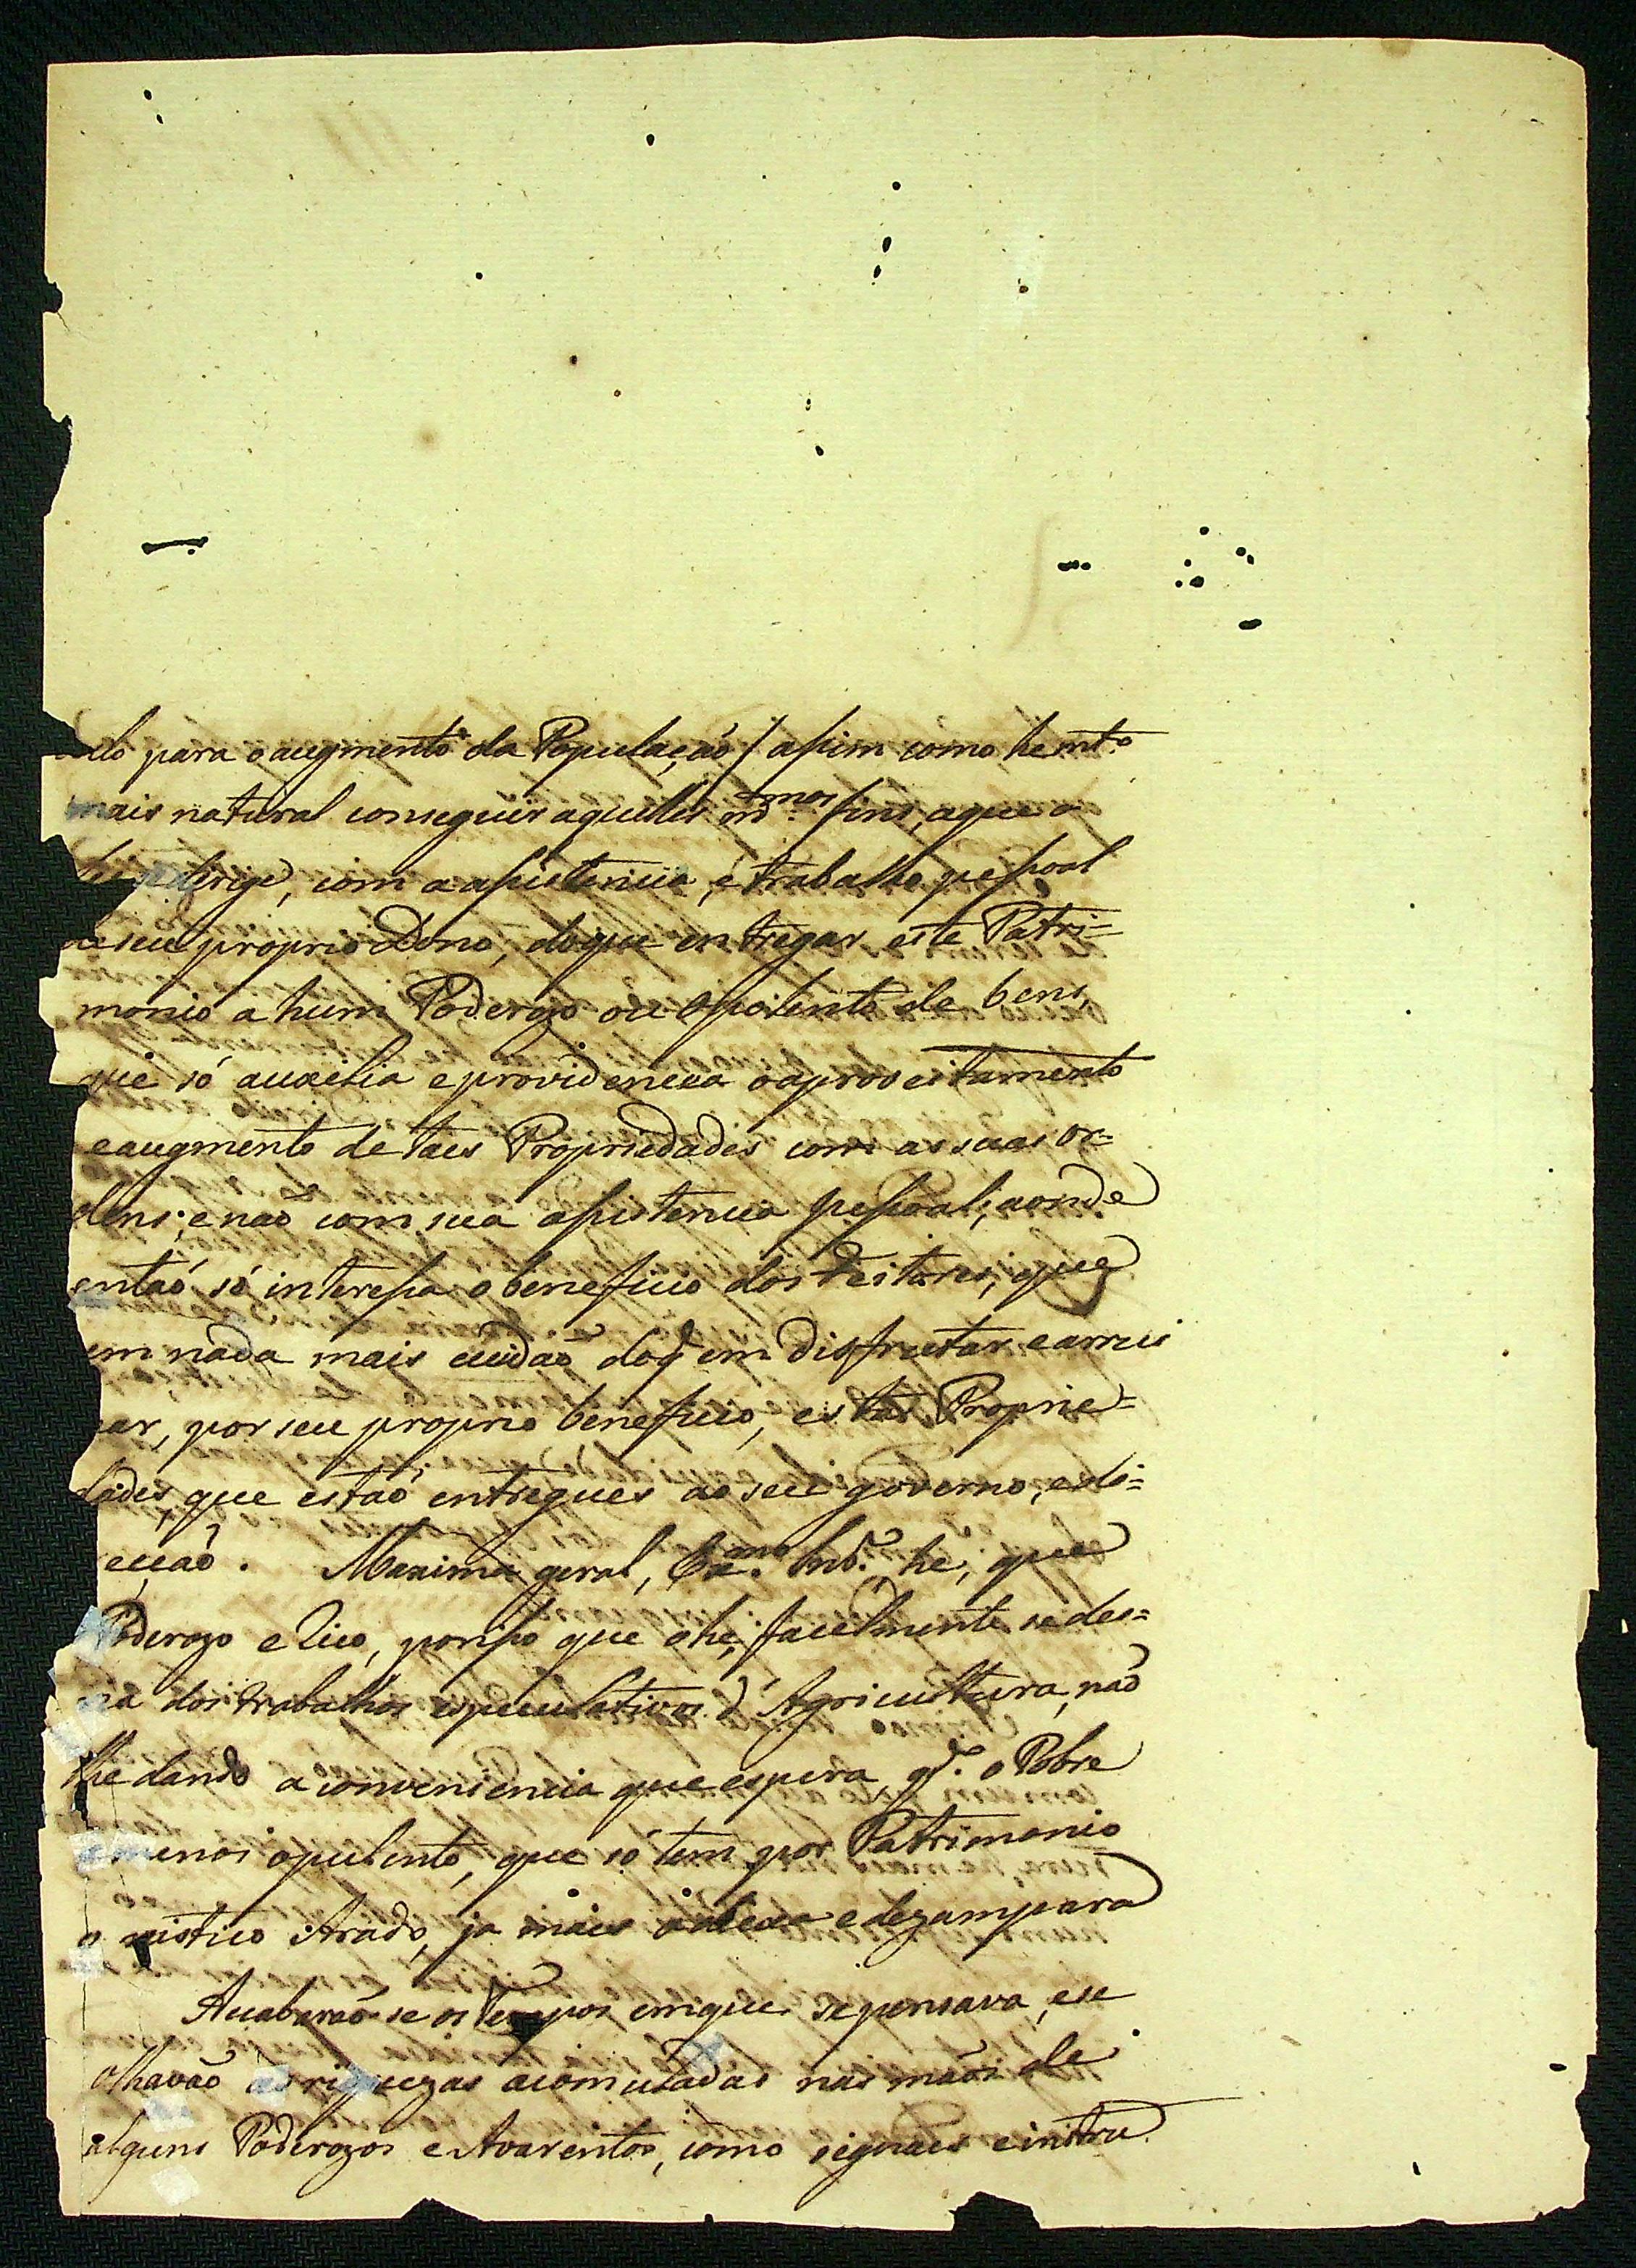 do para o augmento da População / assim como he mt.º
mais natural conseguir aquelles md.mos fins, aque o
derige, com a assistencia, e trabalho pessoal
de seu proprio Dono, doque entregar este Patri=
monio a hum Poderozo ou Opulento de bens,
que só auxelia e providenceia o aproveitamento
e augmento de taes Propriedades com as suas or=
dens; e não com sua assistencia pessoal; aonde
então só interessa o beneficio dos Feitores, que
em nada mais cuidão doq̃ em disfrutar e arrui
nar, por seu proprio beneficio, estas Proprie=
dades, que estão entregues ao seu governo, e di=
recção. Maxima geral, Ex.mo Snr. he, que
Poderozo e Rico, porisso que o he, facelmente se des=
dos trabalhos especulativos d'Agricultura, não
lhe dando a conveniencia que espera, qd.º o Pobre
e menos opulento, que só tem por Patrimonio
o rustico Arado, ja mais o deixa e dezampara
Accabarão-se os Tempos emque se pensava, e se
olhavão as riquezas acomuladas nas mãos de
alguns Poderozos e Avarentos, como signaes e instru